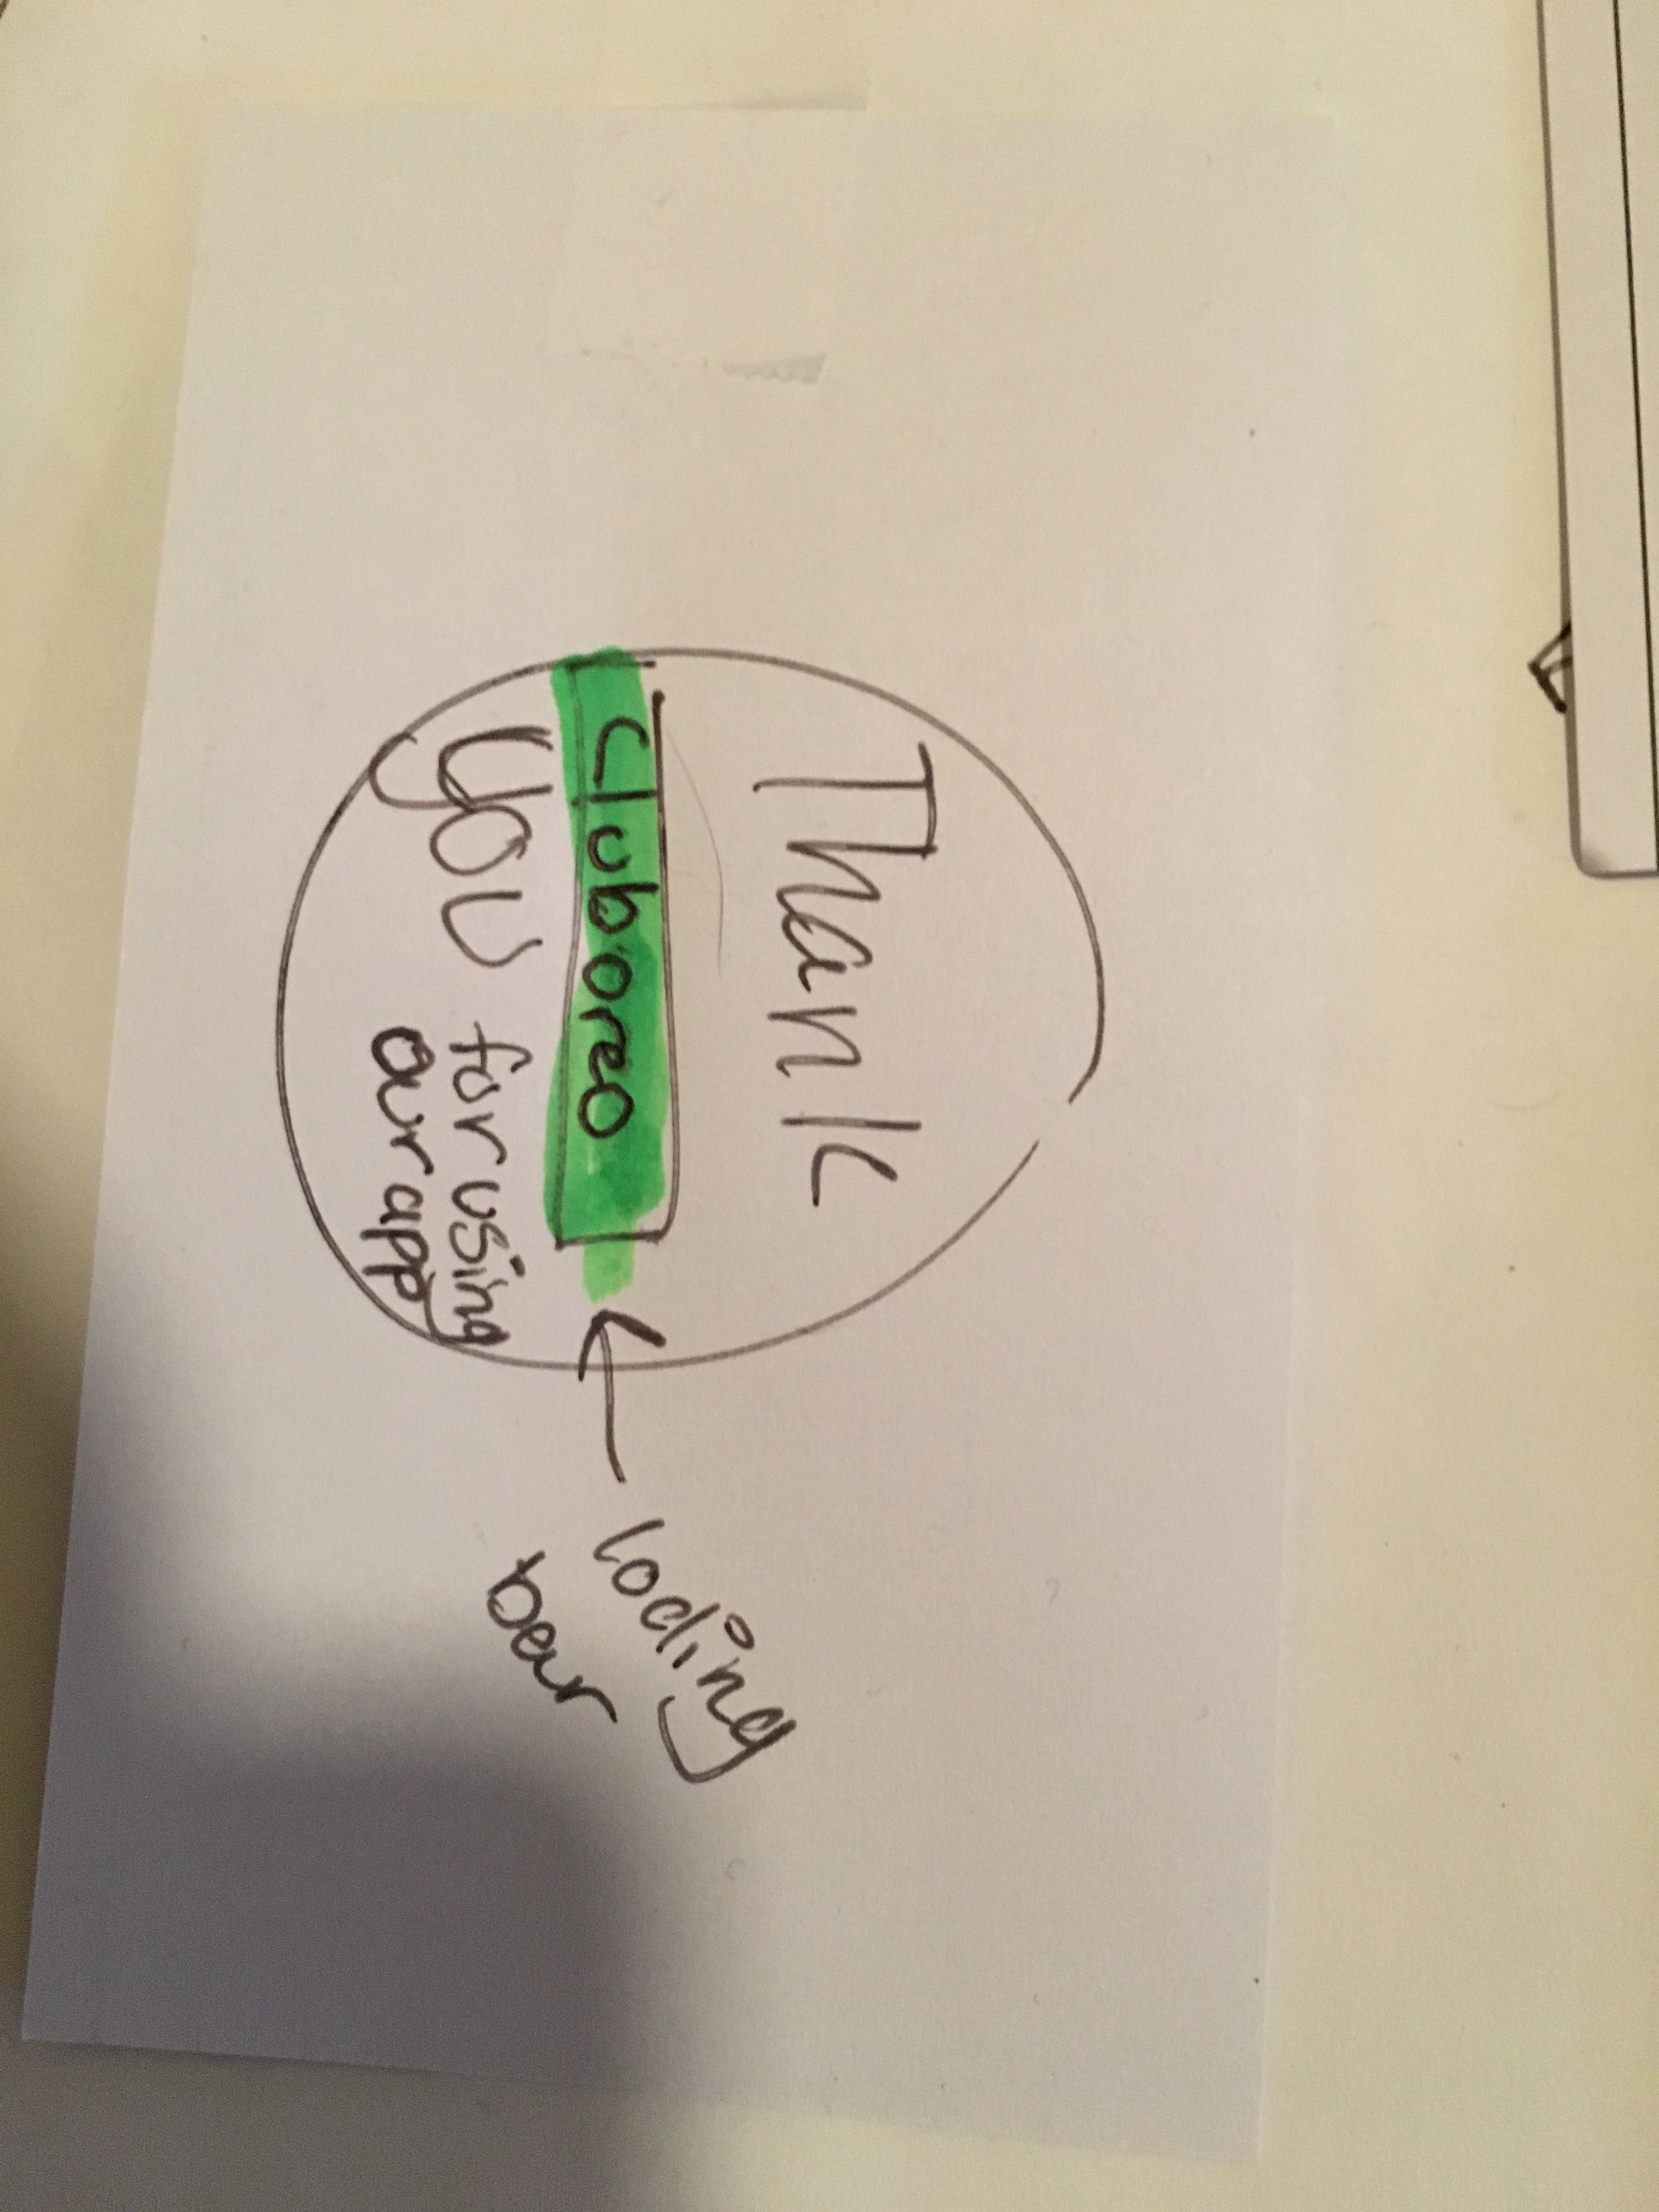 Thank
Cluboreo
you for using
our app
loding
bar